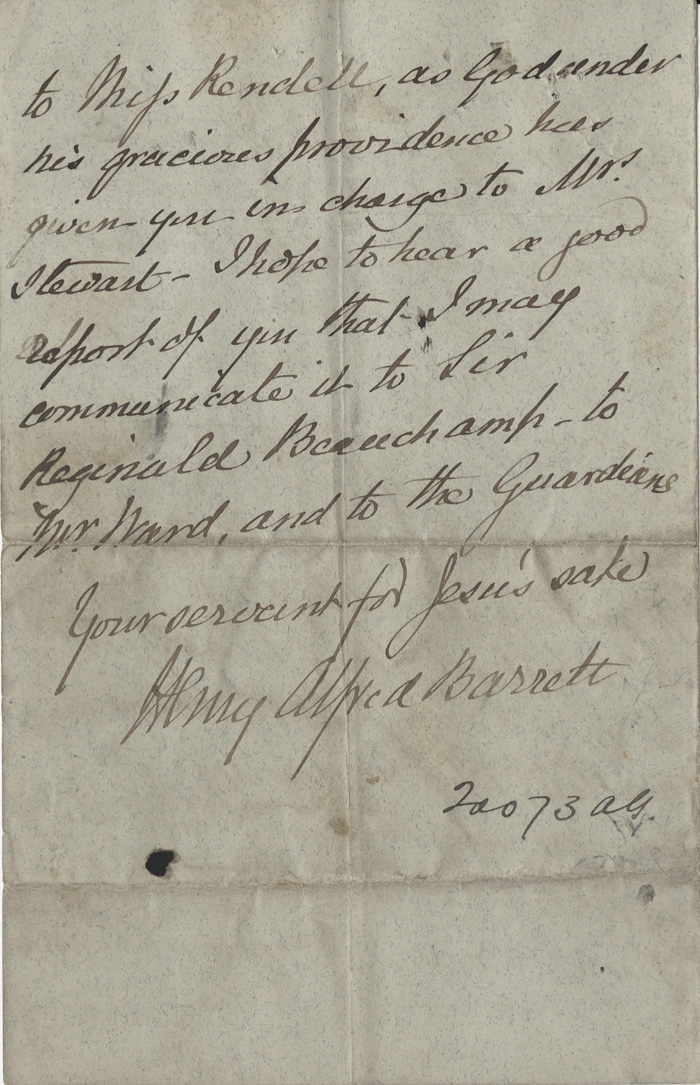 to Miss Rendell, as God under
his gracious providence has
given you in charge to Mrs.
Stewart - I hope to hear a good
report of you that I may
communicate it to Sir
Reginald Beauchamp - to
Mr. Ward, and to the Guardians
Your servant for Jesu's sake
Henry Alfred Barrett